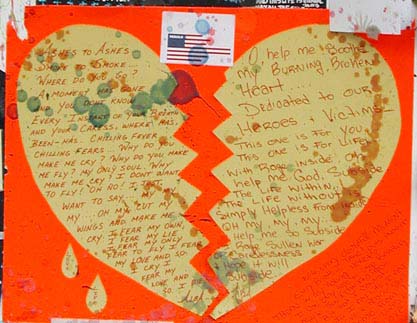 ASHES TO ASHES
SMOKE TO SMOKE...
WHERE DO YOU GO?
A MOMENT HAS GONE
YOU DON'T KNOW
EVERY INSTANT OF YOUR BREATH
AND YOUR CARESS, WHERE HAS
BEEN-HAS. CHILLING FEVER
CHILLING FEARS... WHY DO YOU
MAKE ME CRY? WHY DO YOU MAKE
ME FLY? MY ONLY SOUL. WHY
MAKE ME CRY? I DON'T WANT
TO FLY! OH NO! I
WANT TO SAY
MY OH MY CUT MY
WINGS AND MAKE ME
CRY I FEAR MY OWN
I FEAR MY LIE
I FEAR MY ONLY
FEAR TO FLY I FEAR
MY LOVE AND SO
I CRY I
FEAR MY
LOVE AND
SO. I
O help me Soothe
My Burning, Broken
Heart....
Dedicated to our
Heroes & Victims
This one is for you,
This one is for Life
With Rage inside, oh
help me God, Subside
The Life Within,
The Life Without is
Simply Helpless From inside
Oh My, My
Help me to Subside
Rage Sullen Nor
Carelessness
Hope it will